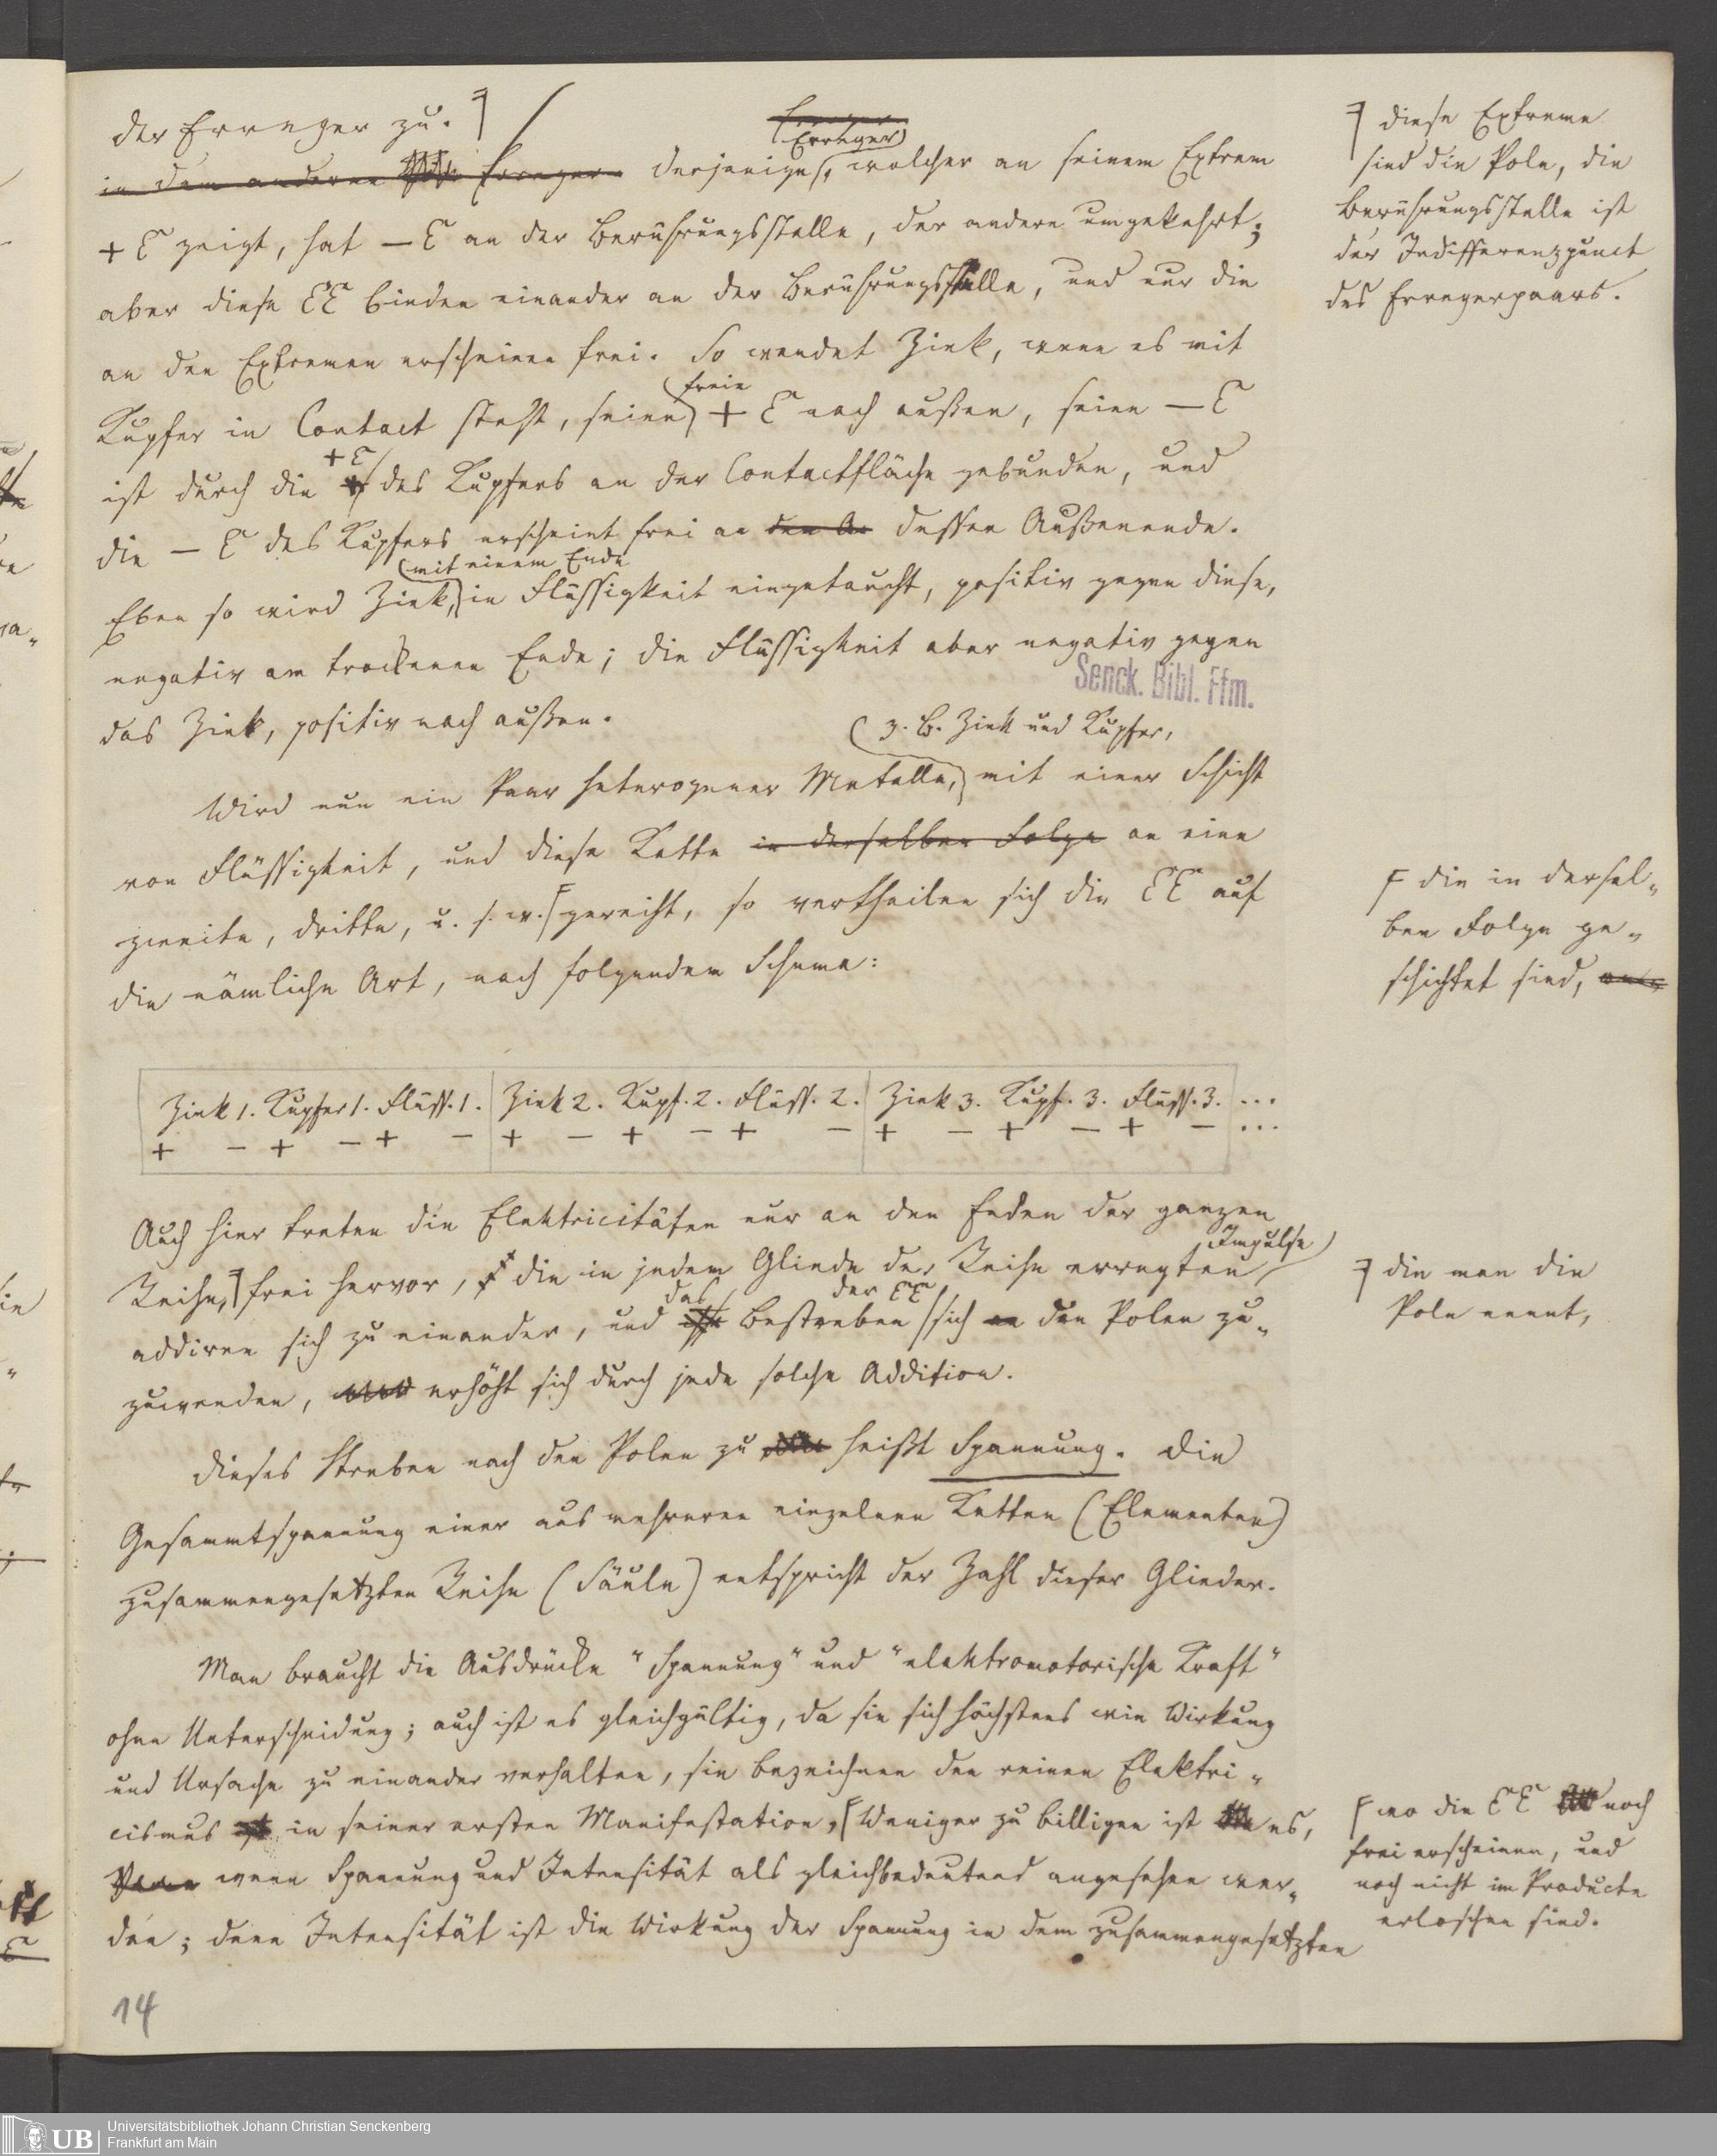 der Erreger zu.
in dem anderen Erreger
Erreger
(Erreger)
derjenige, welcher an seinem Extrem
+ E zeigt, hat — E an der Berührungsstelle, der andere umgekehrt;
aber diese EE binden einander an der Berührungsstelle, und nur die
an den Extremen erscheinen frei. So wendet Zink, wenn es mit
freie
Kupfer in Contact steht, seine + E nach außen, seine — E
+E
ist durch die des Kupfers an der Contactfläche gebunden, und
die — E des Kupfers erscheint frei an den A dessen Außenende.
(mit einem Ende
Eben so wird Zink, in Flüssigkeit eingetaucht, positiv gegen diese,
negativ am trockenen Ende; die Flüssigkeit aber negativ gegen
das Zink, positiv nach außen.
Senck. Bibl. Ffm.
(z. B. Zink und Kupfer,
Wird nun ein Paar heterogener Metalle, mit einer Schicht
von Flüssigkeit, und diese Kette in derselben Folge an eine
zweite, dritte, u. s. w. gereiht, so vertheilen sich die EE auf
die nämliche Art, nach folgendem Schema:
Zink 1. Kupfer 1. Flüss. 1. Zink 2. Kupf. 2. Flüss. 2. Zink 3. Kupf. 3. Flüss. 3. ...
+ — + — + — + — + — + — + — + — + — ...
Auch hier treten die Elektricitäten nur an den Enden der ganzen
Impulse
Reihe, frei hervor, die in jedem Gliede der Reihe erregten
das
der EE
addiren sich zu einander, und Bestreben sich an den Polen zu„
zuwenden, erhöht sich durch jede solche Addition.
Dieses Streben nach den Polen zu heißt Spannung. Die
Gesammtspannung einer aus mehreren einzelnen Ketten (Elementen)
zusammengesetzten Reihe (Säule) entspricht der Zahl dieser Glieder.
Man braucht die Ausdrücke "Spannung" und "elektromotorische Kraft"
ohne Unterscheidung; auch ist es gleichgültig, da sie sich höchstens wie Wirkung
und Ursache zu einander verhalten, sie bezeichnen den reinen Elektri„
cismus in seiner ersten Manifestation, Weniger zu billigen ist es,
wenn Spannung und Intensität als gleichbedeutend angesehen wer„
den; denn Intensität ist die Wirkung der Spannung in dem zusammengesetzten
14
diese Extreme
sind die Pole, die
Berührungsstelle ist
der Indifferenzpunct
des Erregerpaars.
die in dersel„
ben Folge ge„
schichtet sind,
die man die
Pole nennt,
wo die EE noch
frei erscheinen, und
noch nicht im Producte
erloschen sind.
UB
Universitätsbibliothek Johann Christian Senckenberg
Frankfurt am Main